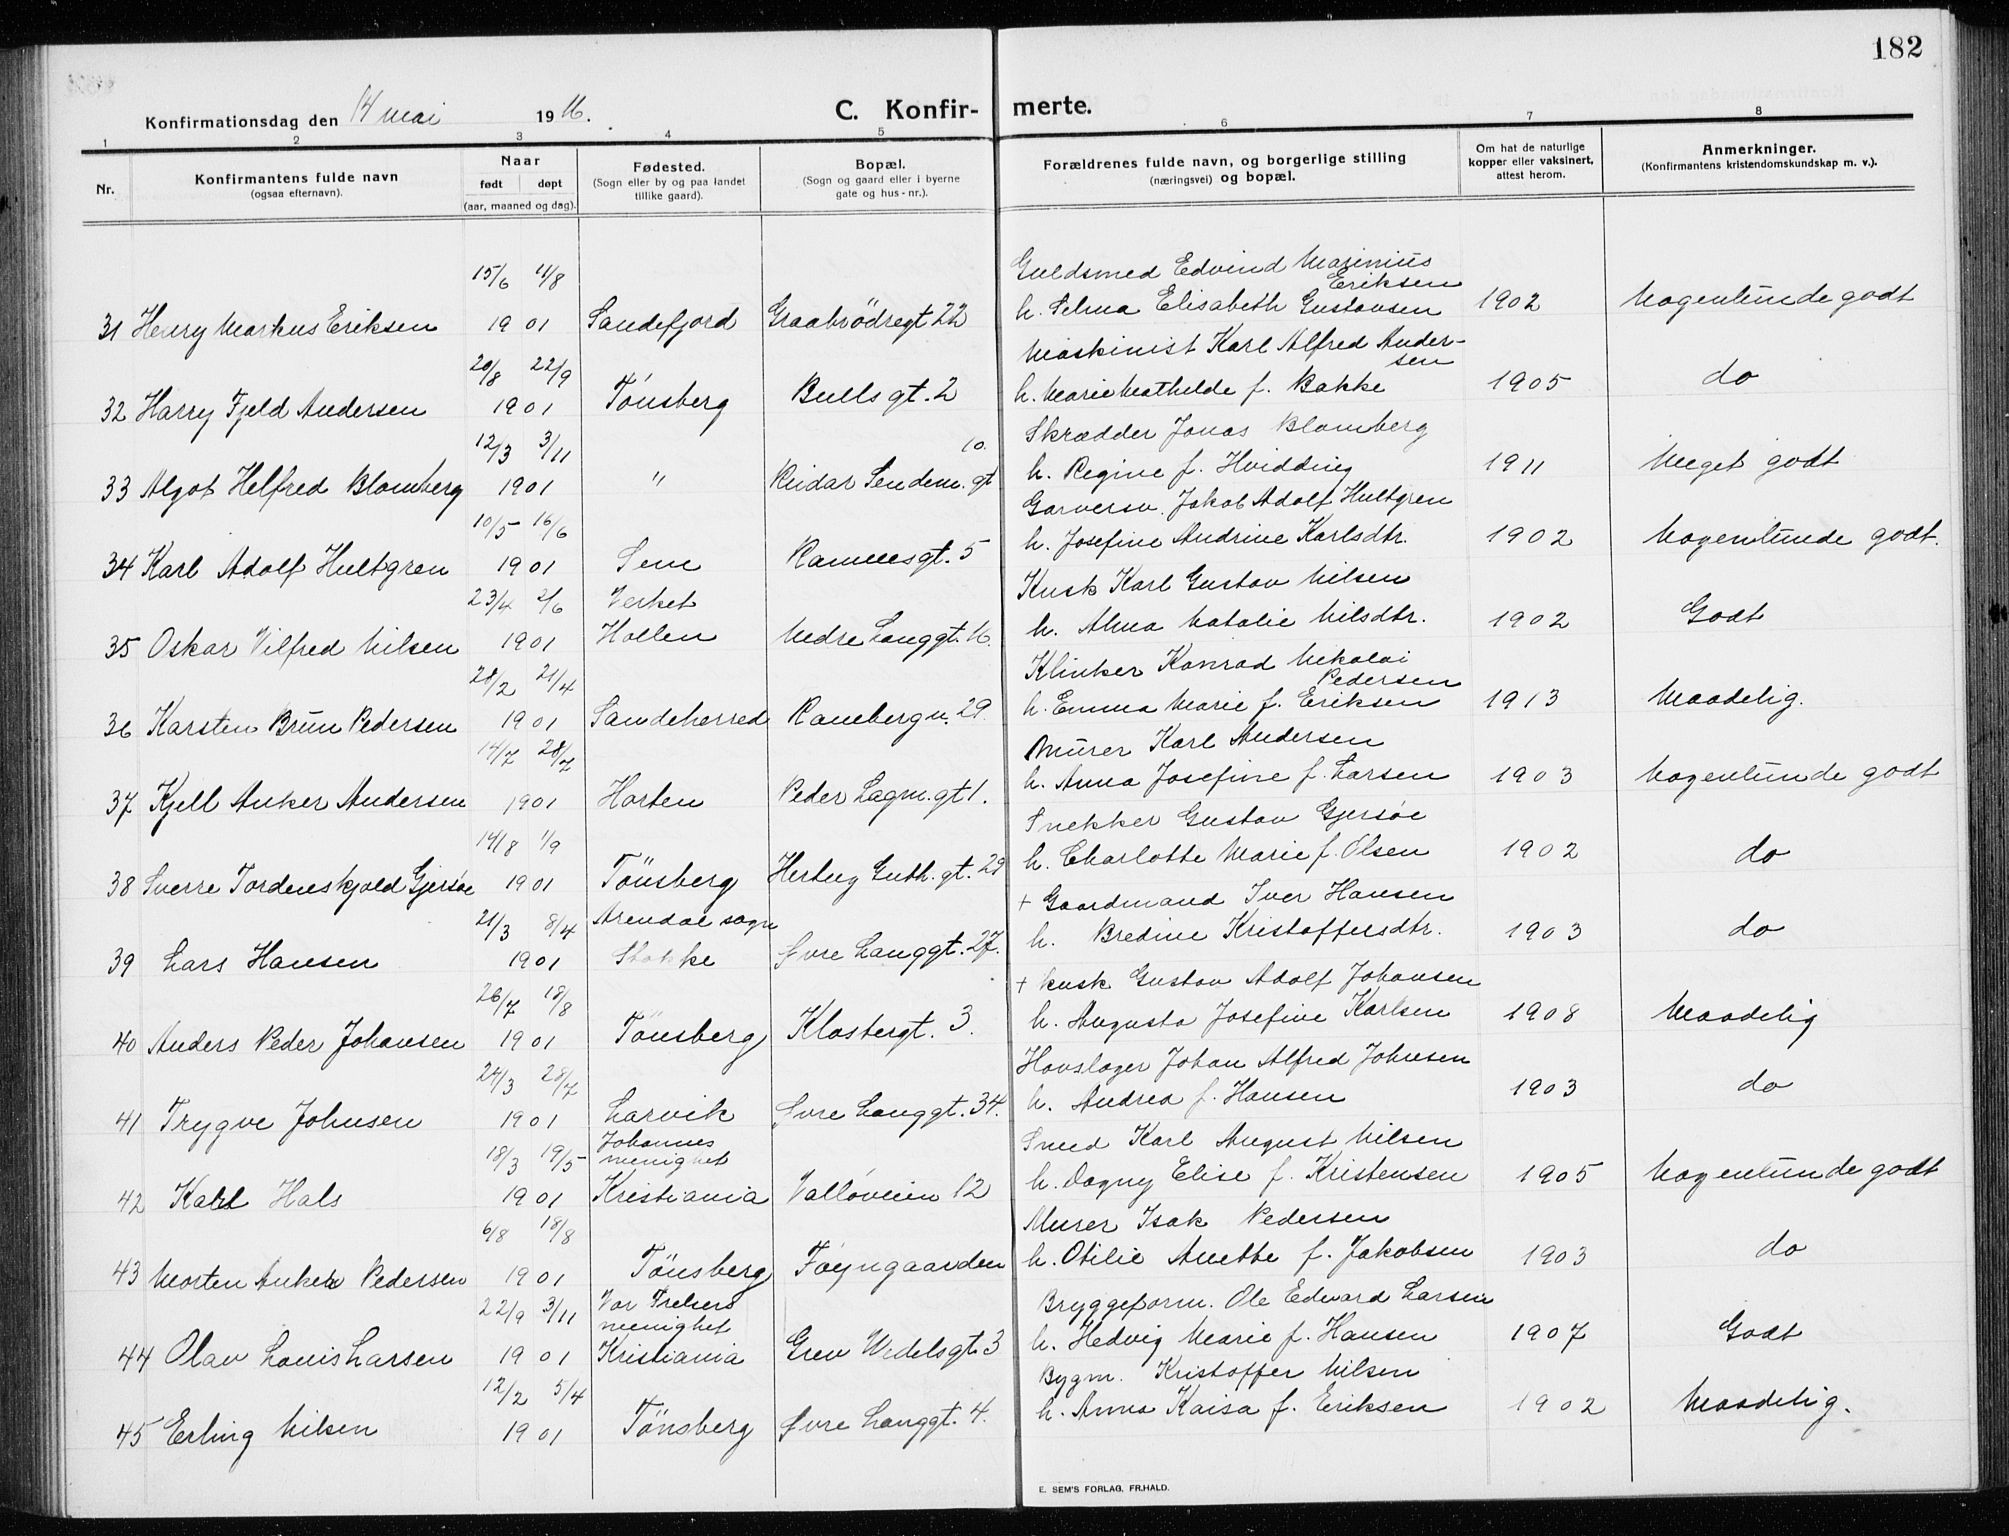 182
Konfirmationsdag den 14 mai 1916.
C. Konfirmerte.
1 2 3 4 5 6 7 8
Nr.
Konfirmantens fulde navn
(ogsaa efternavn).
Naar
født døpt
(aar, maaned og dag).
Fødested.
(Sogn eller by og paa landet
tillike gaard).
Bopæl.
(Sogn og gaard eller i byerne
gate og hus-nr.).
Forældrenes fulde navn, og borgerlige stilling
(næringsvei) og bopæl.
Om hat de naturlige
kopper eller vaksinert,
attest herom.
Anmerkninger.
(Konfirmantens kristendomskundskap m. v.).
15/6 11/8 Guldsmed Edvind Marinius
Eriksen
31 Henry Markus Eriksen 1901 Sandefjord Graabrödregt 22 h. Selma Elisabeth Gustavsen 1902 Nogenlunde godt
20/8 22/9 Maskinist Karl Alfred Ander-
sen
32 Harry Fjeld Andersen 1901 Tönsberg Bullsgt. 2 h. Marie Mathilde f. Bakke 1905 do
12/3 3/11 10. Skrædder Jonas Blomberg
33 Algot Helfred Blomberg 1901 " Reidar Sendem. gt h. Regine f. Hvidding 1911 Meget godt
10/5 16/6 Garversv. Jakob Adolf Hultgren
34 Karl Adolf Hultgren 1901 Sem Ramnesgt. 5 h. Josefine Andrine Karlsdtr. 1902 Nogenlunde godt.
23/4 2/6 Verket Kusk Karl Gustav Nilsen
35 Oskar Vilfred Nilsen 1901 Hollen Nedre Langgt. 16. h. Alma Natalie Nilsdtr. 1902 Godt
28/2 21/4 Klinker Konrad Nikolai
Pedersen
36 Karsten Brun Pedersen 1901 Sandeherred Ramberg v. 29. h. Emma Marie f. Eriksen 1913 Maadelig.
14/7 28/7 Murer Karl Andersen
37 Kjell Anker Andersen 1901 Horten Peder Lagm. gt 1. h. Anna Josefine f. Larsen 1903 Nogenlunde godt
14/8 1/9 Snekker Gustav Gjersøe
38 Sverre Tordenskjold Gjersøe 1901 Tönsberg Hertug Guth. gt. 29 h. Charlotte Marie f. Olsen 1902 do
21/3 8/4 Arendal sogn + Gaardmand Iver Hansen
39 Lars Hansen 1901 Stokke Øvre Langgt. 27. h. Bredine Kristoffersdtr. 1903 do
26/7 18/8 + Kusk Gustav Adolf Johansen
40 Anders Peder Johansen 1901 Tönsberg Klostergt. 3. h. Augusta Josefine Karlsen 1908 Maadelig
24/3 28/7 Hovslager Johan Alfred Johnsen
41 Trygve Johnsen 1901 Larvik Øvre Langgt. 34. h. Andrea f. Hansen 1903 do
18/3 19/5 Johannes
menighet Smed Karl August Nilsen
42 Hals 1901 Kristiania Vallöveien 12 h. Dagny Elise f. Kristensen 1905 Nogenlunde godt
6/8 18/8 Murer Isak Pedersen
43 Morten Anker Pedersen 1901 Tönsberg Föyngaarden h. Otilie Anette f. Jakobsen 1903 do
22/9 3/11 Vor Frelsers
menighet Bryggeform. Ole Edvard Larsen
44 Olav Louis Larsen 1901 Kristiania Grev Wedelsgt. 3 h. Hedvig Marie f. Hansen 1907 Godt
12/2 5/4 Bygm. Kristoffer Nilsen
45 Erling Nilsen 1901 Tönsberg Øvre Langgt. 4. h. Anna Kaisa f. Eriksen 1902 Maadelig.
E. SEM'S FORLAG, FR.HALD.